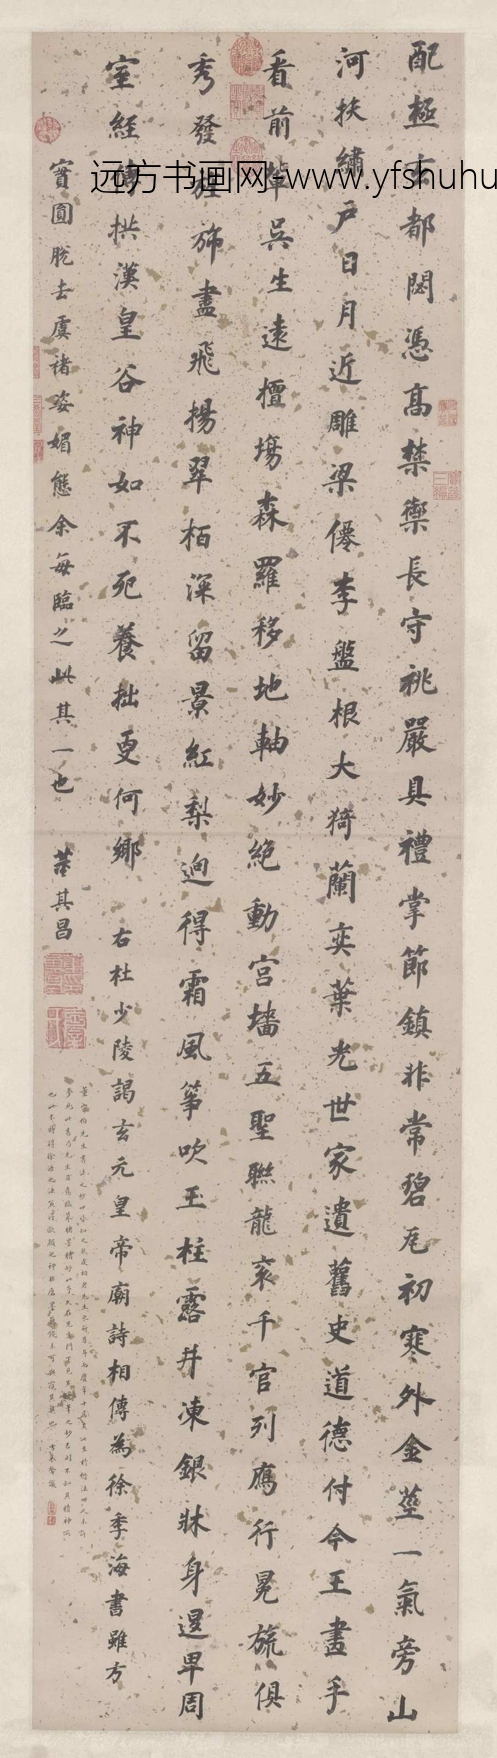 配極玄都閟憑高禁禦長守祧嚴具禮掌節鎮非常碧瓦初寒外金莖一氣旁山
河扶繡戶日月近雕梁僊李盤根大猗蘭奕葉光世家遺舊史道德付今王畫手
看前輩吳生遠擅場森羅移地軸妙絕動宮墻五聖聯龍袞千官列鴈行冕旒俱
秀發旌旆盡飛揚翠栢深留景紅梨迥得霜風箏吹玉柱露井凍銀牀身退卑周
室經傳拱漢皇谷神如不死養拙更何鄉 右杜少陵謁玄元皇帝廟詩相傳為徐季海書雖方
實圓脫去虞褚姿媚態余每臨之此其一也 董其昌
远方书画网-www.yfshuhu